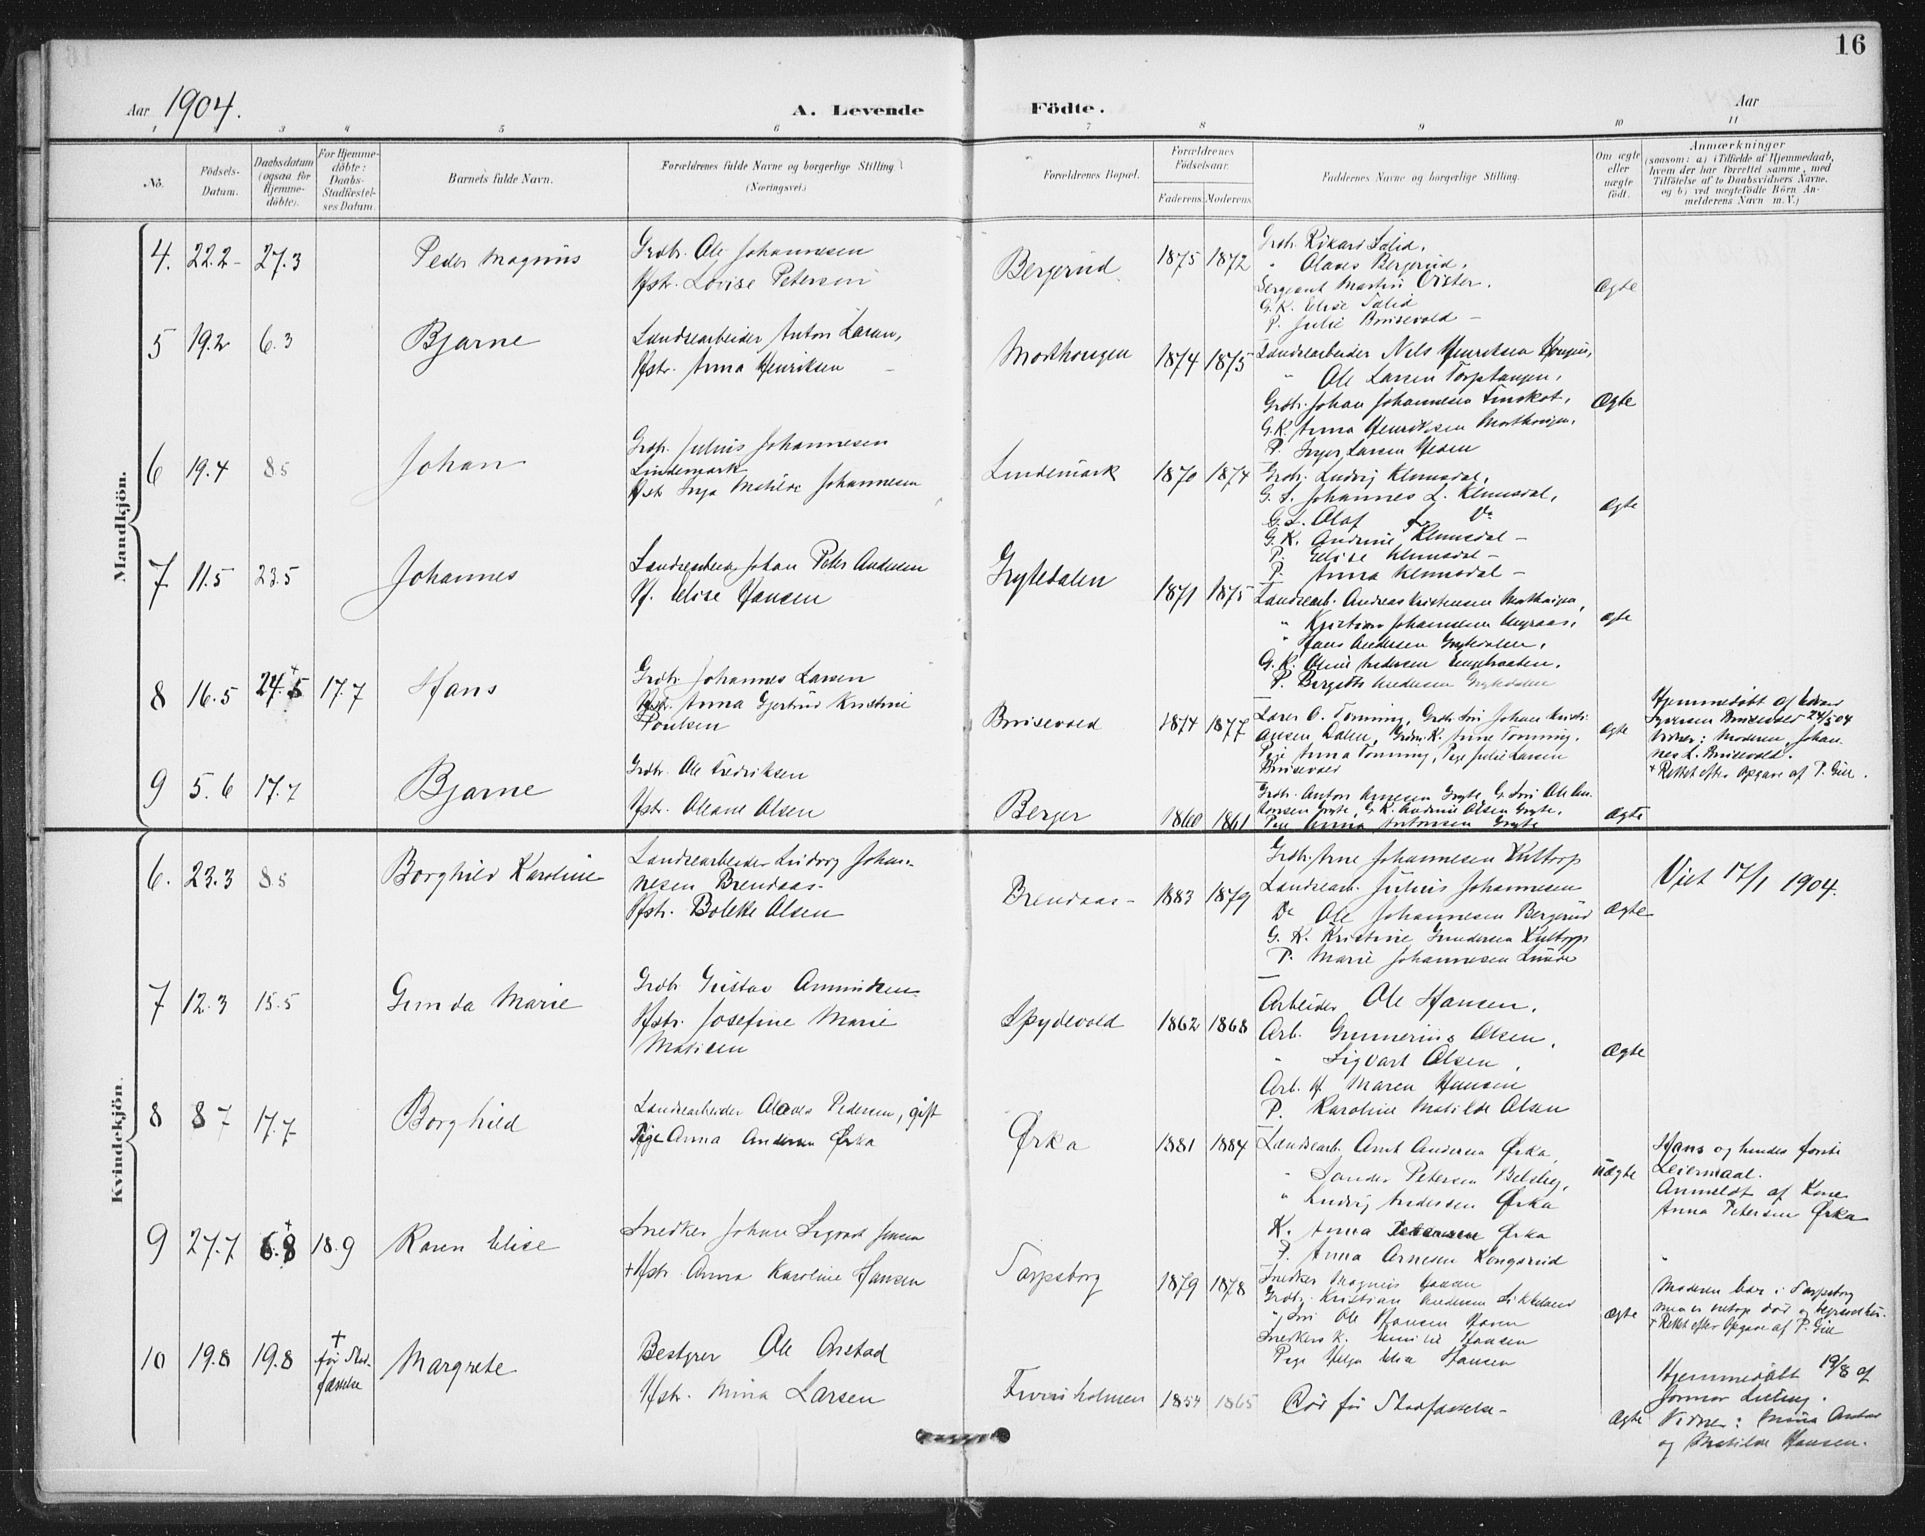 16
Aar 1904. A. Levende Födte. Aar
1 2 3 4 5 6 7 8 9 10 11
No.
Födsels-
Datum.
Daabsdatum
(ogsaa for
Hjemme-
döbte).
For Hjemme-
döbte:
Daabs-
Stadfæstel-
ses Datum.
Barnets fulde Navn.
Forældrenes fulde Navne og borgerlige Stilling
(Næringsvei.)
Forældrenes Bopæl.
Forældrenes
Födselsaar.
Faderens Moderens
Faddernes Navne og borgerlige Stilling.
Om ægte
eller
uægte
födt.
Anmærkninger
(saasom: a) i Tilfælde af Hjemmedaab,
hvem der har forrettet samme, med
Tilföielse af to Daabsvidners Navne,
og b) ved uægtefödte Börn An-
melderens Navn m. V.)
Mandkjön.
4. 22.2 27.3 Peder Magnus
Grdbr. Ole Johannesen
Hstr. Lovise Petersen
Bergerud 1875 1872
Grdbr. Rikard
Olaves Bergerud.
Sergeant Martin
G.K. Elise
P. Julie Brusevold
Ægte
5 19.2 6.3 Bjarne
Landsearbeider Anton Larsen,
Hstr. Anna Henriksen
Morthaugen 1874 1875
Landsearbeider Nels Henriksen
" Ole Larsen Torptangen,
Grdbr. Johan Johannesen
G.K. Anna Henriksen Morthaugen,
P. Inger Larsen
Ægte
6 19.4 8.5 Johan
Grdbr. Julius Johannesen
Lindemark
Hstr. Inga Matilde Johannesen
Lindemark 1870 1874
Grdbr. Ludvig Klemsdal,
G.S. Johannes L. Klemsdal,
G.S. Olaf L. Do
G.K. Andrine Klemsdal
P. Elise Klemsdal
P. Anna Klemsdal
Ægte
7 11.5 23.5 Johannes
Landsearbeider Johan Peter Andersen
H. Elise Hansen
Grytedalen 1871 1875
Landsearb. Andreas Kristensen Morthaugen,
" Kristian Johannesen
" Hans Andersen Grytedalen,
G.K. Oline Andersen
P. Bergitte Andersen Grytedalen
Ægte
8 16.5 24.+5 17.7 Hans
Grdbr. Johannes Larsen
Hstr. Anna Gjertrud Kristine
Poulsen
Brusevold 1874 1877
Lærer O. Tomming, Grdbr. Søn Johan Kristi-
ansen Dalen, Grdbr. K. Anne Tomming,
Pige Anna Tomming, Pige Julie Larsen
Brusevold
Ægte
Hjemmedøbt af
Iversen Brusevold 24/5 04
Vidner: Moderen, Johan-
nes L. Brusevold.
+ Rettet efter Opgave af P. Gill.
9 5.6 17.7 Bjarne
Grdbr. Ole Fredriksen
Hstr. Oleane Olsen
Berger 1860 1861
Grdbr. Anton Arnesen Gryte, G. Søn Ole An-
tonsen Gryte, G.K. Andrine Olsen Gryte,
Pige Anna Antonsen Gryte
Ægte
Kvindekjön.
6. 23.3 8.5 Borghild Karoline
Landsearbeider Ludvig Johan-
nesen Brendaas
Hstr. Bolette Olsen
Brendaas 1883 1879
Grdbr. Arne Johannesen Kultorp
Landsearb. Julius Johannesen
Do Ole Johannesen Bergerud
G.K. Kristine Gundersen Kultorp
P. Marie Johannesen Lunde
Ægte
Viet 17/1 1904.
7 12.3 15.5 Gunda Marie
Grdbr. Gustav Amundsen
Hstr. Josefine Marie
Matisen
Spydevold 1862 1868
Arbeider Ole Hansen,
Arb. Gunnerius Olsen,
" Sigvart Olsen,
Arb. H. Maren Hansen
P. Karoline Matilde Olsen
Ægte
8 8 7 17.7 Borghild
Landsearbeider Olaves Pedersen, gift
Pige Anna Andersen Ørka
Ørka 1881 1884
Landsearb. Anst Andersen Ørka,
" Sander Petersen
" Ludvig Andersen Ørka
K. Anna Petersen Ørka
P. Anna Arnesen Kongsrud
uægte
Hans og hendes første
Leiermaal.
Anmeldt af Kone
Anna Petersen Ørka
9 27.7 6.+8 18.9 Karen Elise
Snedker Johan Sigvart Jensen
+ Hstr. Anna Karoline Hansen
Sarpsborg 1879 1878
Snedker Magnus Hansen
Grdbr. Kristian Andersen Sikkeland
" Søn Ole Hansen Haven
Snedkers K. Emilie Hansen
Pige Helga Hansen
Ægte
Moderen bor i Sarpsborg
men er netop død og begravet her.
+ Rettet efter Opgave af P. Gill
10 19.8 19.8 + før Stad-
fæstelse
Margrete
Bestyrer Ole Onstad
Hstr. Mina Larsen
1854 1865
Død før Stadfæstelse
Ægte
Hjemmedøbt 19/8 af
Jormor
Vidner: Mina Onstad
og Matilde Hansen.